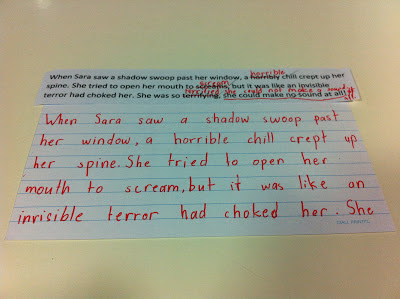 horrible
When Sara saw a shadow swoop past her window, a horribly chill crept up her
scream
spine. She tried to open her mouth to screams, but it was like an invisible
terrified she could not make a sound at all
terror had choked her. She was so terrifying, she could make no sound at all!
When Sara saw a shadow swoop past
her window, a horrible chill crept up
her spine. She tried to open her
mouth to scream, but it was like an
invisible terror had choked her. She